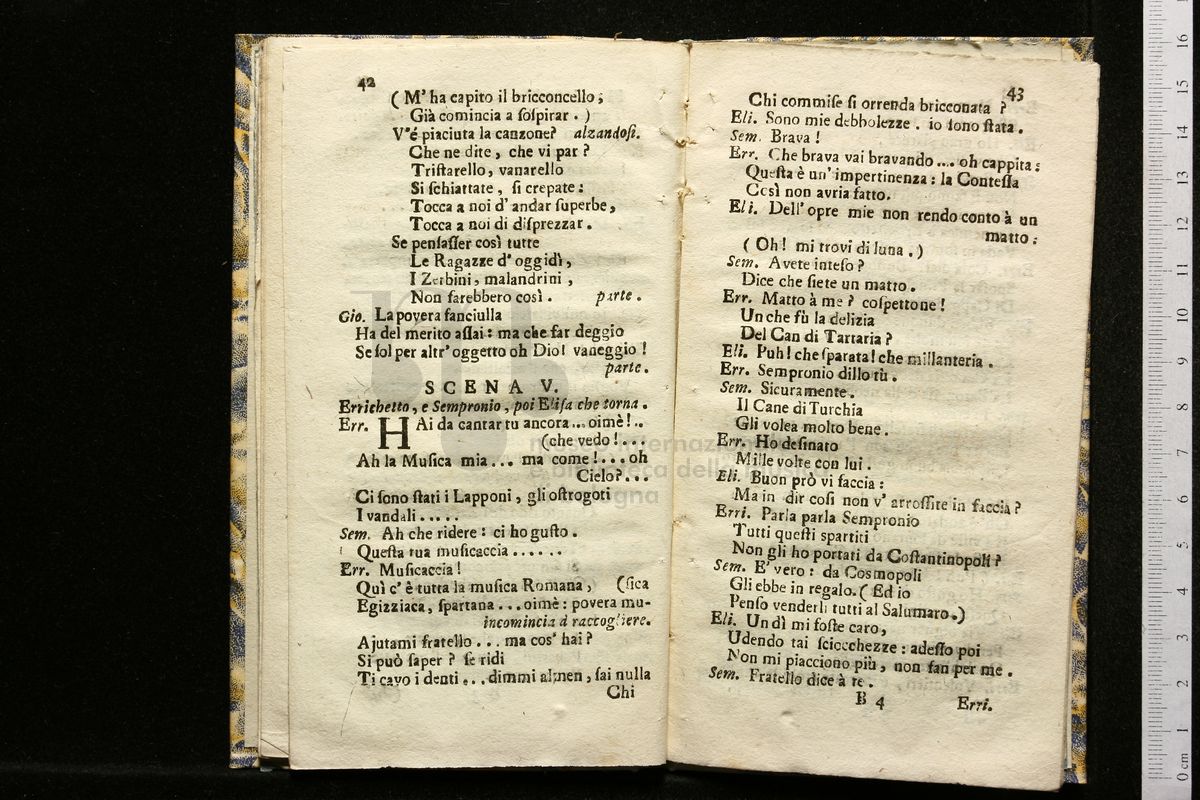 42
( M' ha capito il bricconcello,
Già comincia a ſoſpirar . )
V'é piaciuta la canzone? alzandoſi.
Che ne dite, che vi par ?
Triſtarello, vanarello
Si ſchiattate, ſi crepate :
Tocca a noi d' andar ſuperbe,
Tocca a noi di diſprezzar .
Se penſaſſer così tutte
Le Ragazze d' oggidì,
I Zerbini, malandrini,
Non ſarebbero così . parte .
Gio. La povera fanciulla
Ha del merito aſſai : ma che far deggio
Se ſol per altr' oggetto oh Dio! vaneggio !
parte .
SCENA V.
Errichetto, e Sempronio, poi Eliſa che torna .
Err. HAi da cantar tu ancora ... oimè ! ..
(che vedo ! ...
Ah la Muſica mia ... ma come ! ... oh
Cielo ? ...
Ci ſono ſtati i Lapponi, gli oſtrogoti
I vandali .....
Sem. Ah che ridere : ci ho guſto .
Queſta tua muſicaccia ......
Err. Muſicaccia !
Quì c' è tutta la muſica Romana, (ſica
Egizziaca, ſpartana ... oimè : povera mu-
incomincia à raccogliere.
Ajutami fratello ... ma cos' hai ?
Si può ſaper ? ſe ridi
Ti cavo i denti ... dimmi almen, ſai nulla
Chi
43
Chi commiſe ſi orrenda bricconata ?
Eli. Sono mie debbolezze . io ſono ſtata .
Sem. Brava !
Err. Che brava vai bravando .... oh cappita :
Queſta è un' impertinenza : la Conteſſa
Così non avria fatto.
Eli. Dell' opre mie non rendo conto à un
matto :
( Oh ! mi trovi di luna . )
Sem. Avete inteſo ?
Dice che ſiete un matto .
Err. Matto à me ? coſpettone !
Un che fù la delizia
Del Can di Tartaria ?
Eli. Puh ! che ſparata ! che millanteria .
Err. Sempronio dillo tù .
Sem. Sicuramente .
Il Cane di Turchia
Gli volea molto bene .
Err. Ho deſinato
Mille volte con lui .
Eli. Buon prò vi faccia :
Ma in dir coſi non v' arroſſite in faccia ?
Erri. Parla parla Sempronio
Tutti queſti spartiti
Non gli ho portati da Coſtantinopoli ?
Sem. E' vero : da Cosmopoli
Gli ebbe in regalo. ( Ed io
Penſo venderli tutti al Salumaro . )
Eli. Un dì mi foſte caro,
Udendo tai ſciocchezze : adeſſo poi
Non mi piacciono più, non fan per me .
Sem. Fratello dice à te .
B 4
Erri.